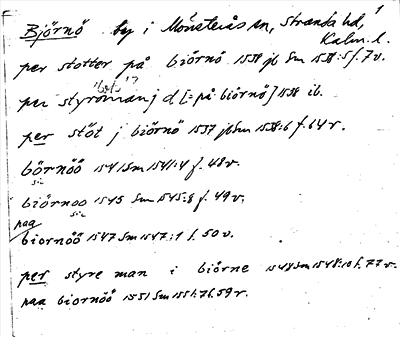 1
Björnö by i Mönsterås sn, Stranda hd, Kalm. l.
per stotter på biörnö 1538 jb Sm 1538:5 f. 7 v.
per styroman j d [= på biörnö] 1538 ib.
per stöt j biörnö 1537 jb Sm 1538:6 f. 64 v.
börnöö 1541 Sm 1541:4 f. 48 v.
sic
biörnoo 1545 Sm 1545:8 f. 49 v;
sic
paa
biornöö 1547 Sm 1547:1 f. 50 v.
per styre man i biörne 1548 Sm 1548:10 f. 77 v.
paa biornöö 1551 Sm 1551:7 f. 59 r.